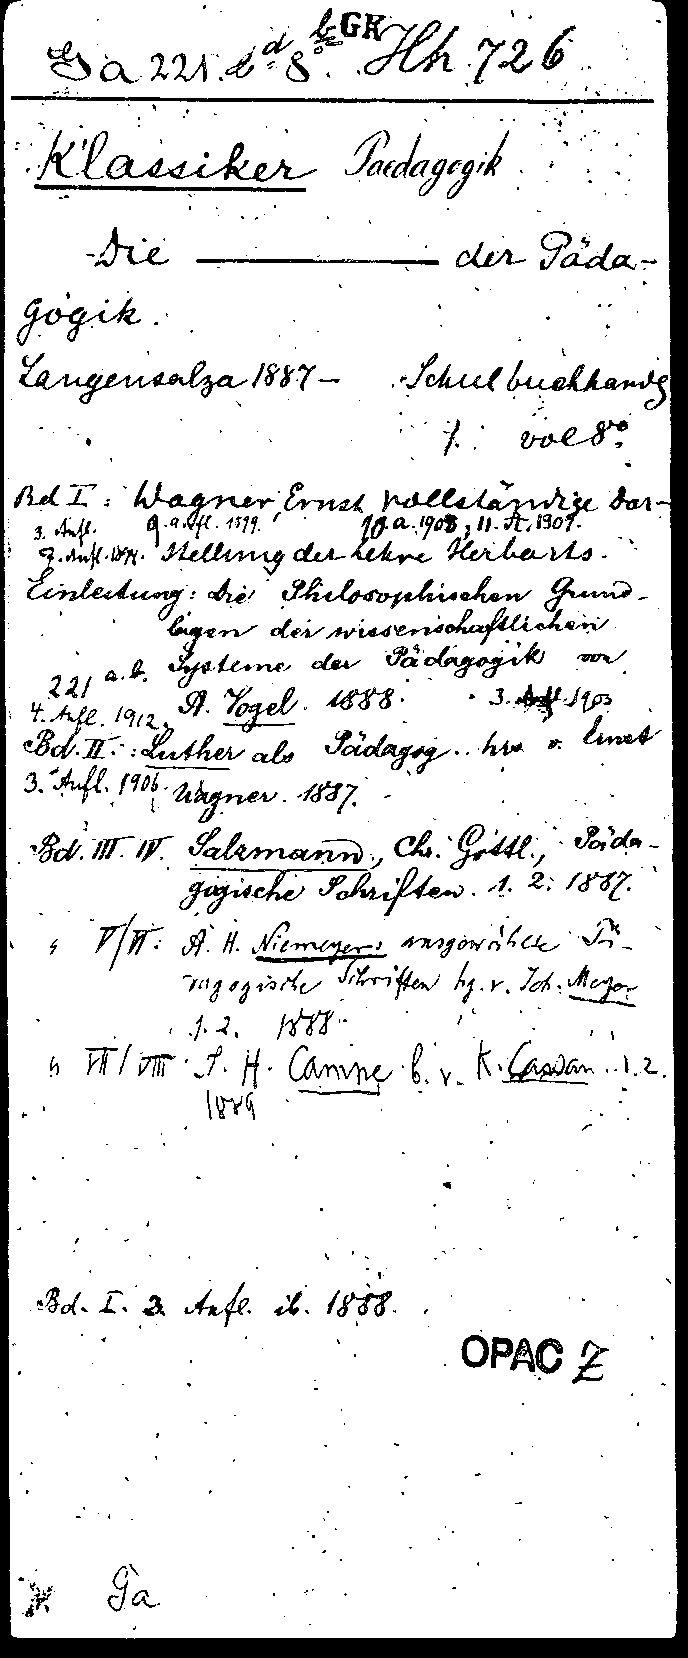 Ga 221. b d 8° b GK Hh 726
Klassiker Paedagogik
Die ——— der Päda-
gogik.
Langensalza 1887 – Schulbuchhandlg
1. vol 8°.
Bd I: Wagner, Ernst, vollständige Dar-
3. Aufl. 9. Aufl. 1899. 10. A. 1903, 11. A. 1907.
7. Aufl. 1894. stellung der Lehre Herbarts.
Einleitung: Die Philosophischen Grund-
lagen der wissenschaftlichen
Systeme der Pädagogik von
221 a.b. A. Vogel. 1888. 3. Aufl. 1903
4. Aufl. 1912.
Bd. II: Luther als Pädagog. hrs v. Ernst
3. Aufl. 1906. Wagner. 1887.
Bd. III. IV. Salzmann, Chr. Gottl., Päda-
gogische Schriften. 1. 2. 1887.
" V/VI: A. H. Niemeyers ausgewählte Pä-
dagogische Schriften hg. v. Joh. Meyer
1. 2. 1888.
" VII/VIII J. H. Campe b. v. K. Cassau. 1. 2.
1889
Bd. I. 3. Aufl. ib. 1888.
OPAC Z
Ga